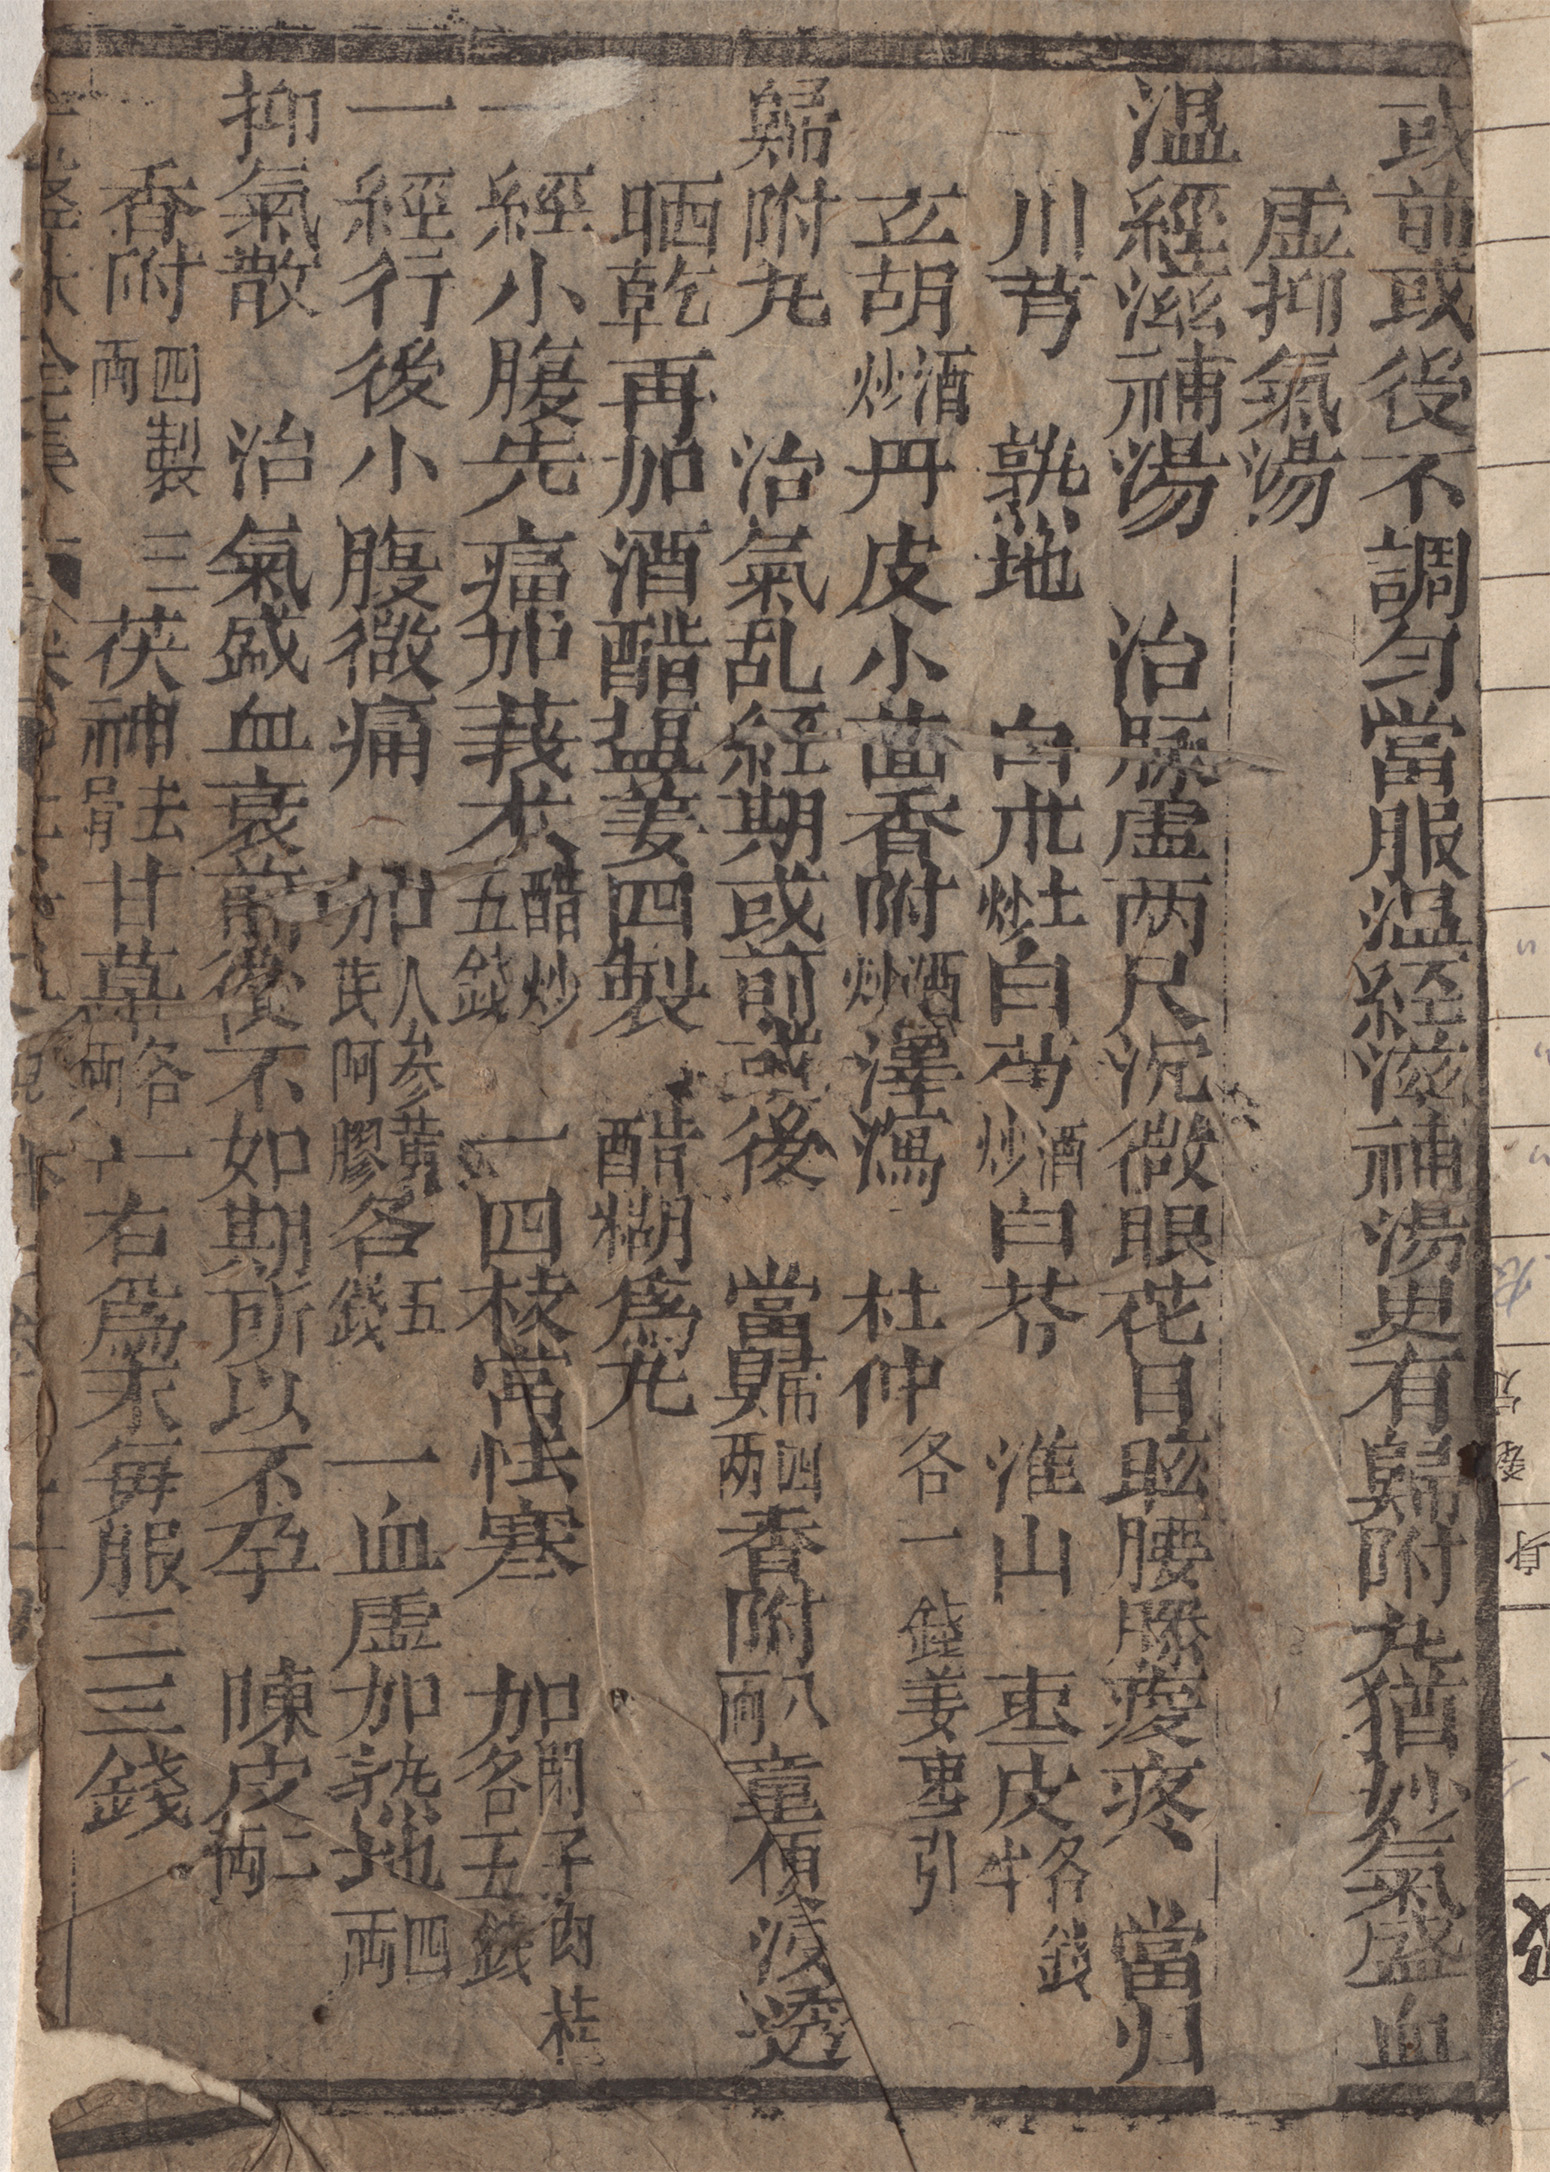 或前或後不調勻當服温経滋補湯更有歸附丸猶妙氣盛血
虛抑氣湯
温經滋補湯 治脉虛两尺沉微眼花目眩腰膝痠疼 當归
川芎 熟地 白朮土炒白芍酒炒白芥 淮山 枣皮各牛錢
玄胡酒炒丹皮小茴香附酒炒澤瀉 杜仲各一錢姜枣引
歸附丸 治氣乱経期或前或後 當歸四两香附八両童便浸透
晒乾再加酒醋塩姜四製 醋糊為丸
一經小腹先痛加莪朮醋炒五錢 一四校常怯寒 加附子肉桂各五錢
一經行後小腹微痛 加人参黄芪阿膠各五錢 一血虛加熟地四両
抑氣散 治氣盛血衰前後不如期所以不孕 陳皮二両
香附四製三両茯神去骨甘草各一両 右為末每服二三錢